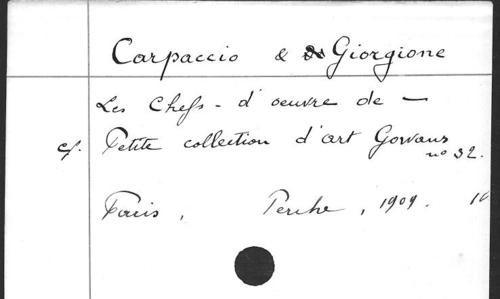 Carpaccio & Giorgione
Les Chefs-d'oeuvre de —
cf. Petite collection d'art Gowans
no 32.
Paris, Perche, 1909.